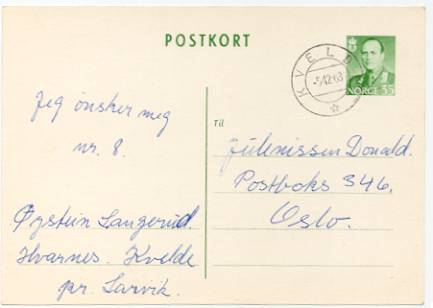 POSTKORT
KVELDE
-5.12.63
NORGE 35
Jeg ønsker meg
nr. 8.
Øystein Langerud.
Hvarnes. Kvelde
pr. Larvik.
Til
Julenissen Donald.
Postboks 346.
Oslo.